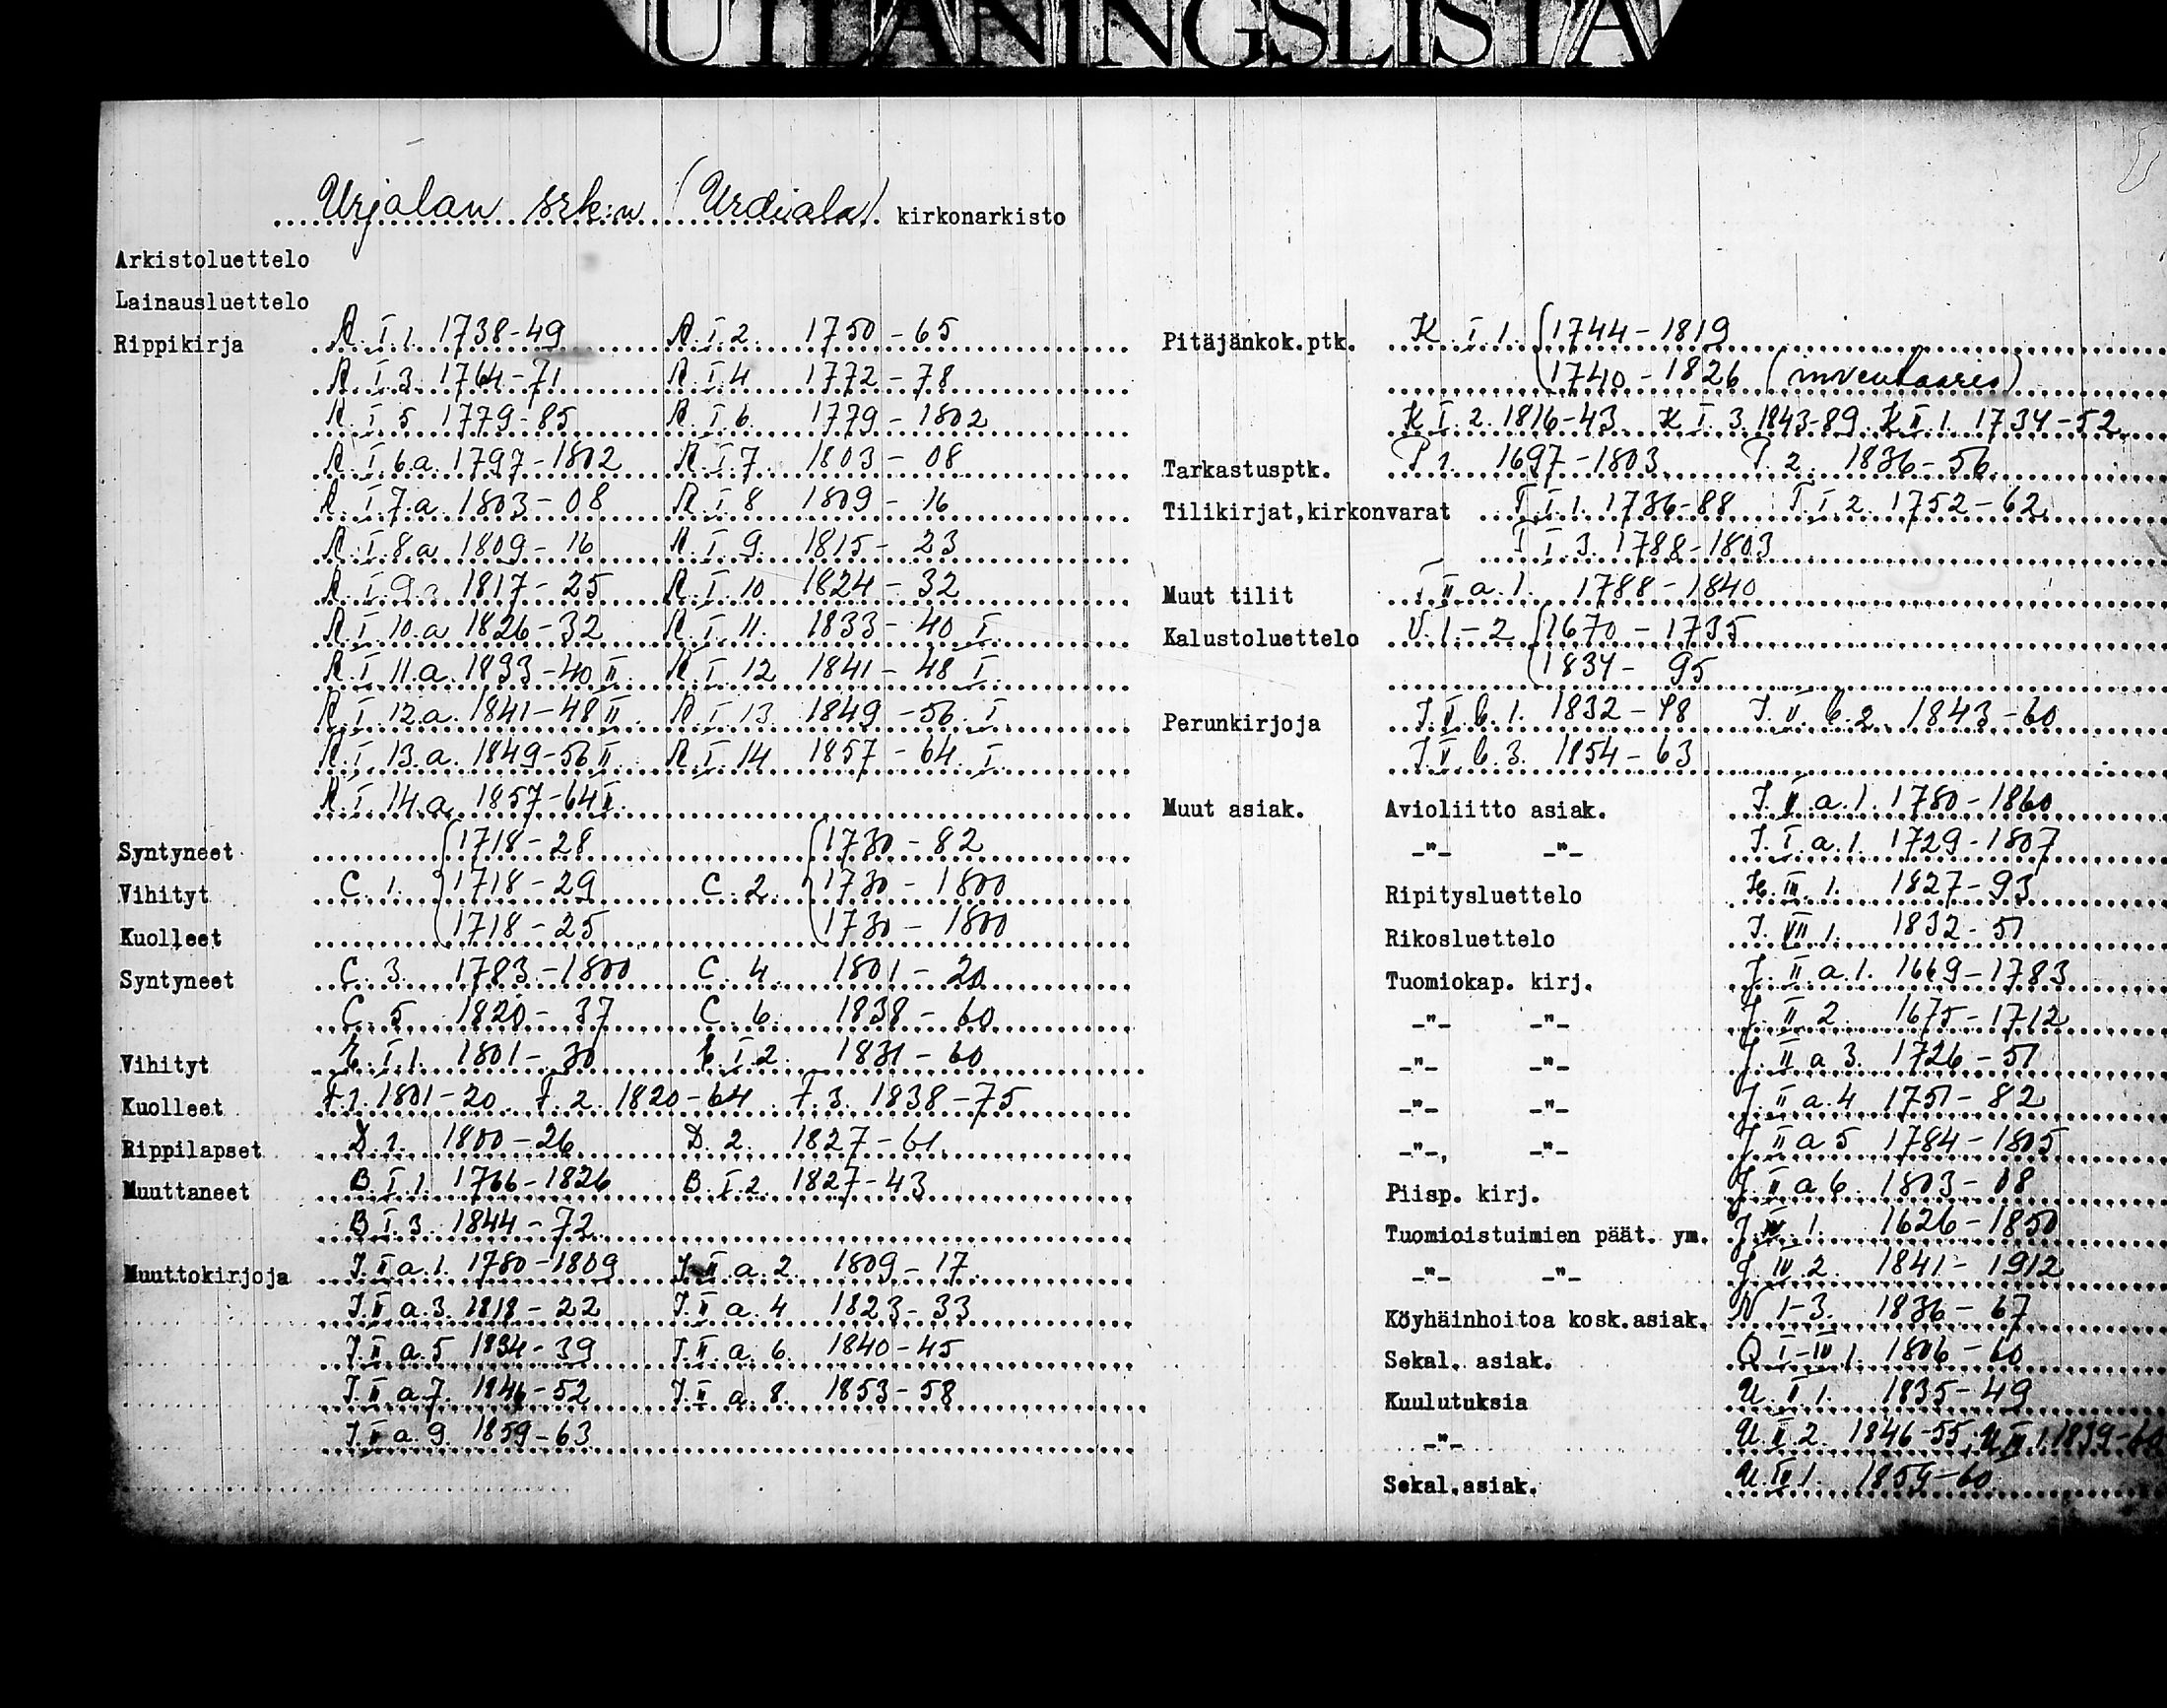 UTLÅNINGSLISTA
Urjalan srk:n (Urdiala) kirkonarkisto
Arkistoluettelo
Lainausluettelo
Rippikirja R. I. 1. 1738-49 R. I. 2. 1750-65
R. I. 3. 1764-71 R. I. 4 1772-78
R. I. 5 1779-85 R. I. 6. 1779-1802
R. I. 6.a. 1797-1802 R. I. 7. 1803-08
R. I. 7.a. 1803-08 R. I. 8 1809-16
R. I. 8.a 1809-16 R. I. 9. 1815-23
R. I. 9.a 1817-25 R. I. 10 1824-32
R. I. 10.a 1826-32 R. I. 11. 1833-40 I.
R. I. 11.a. 1833-40 II. R. I. 12 1841-48 I.
R. I. 12.a. 1841-48 II. R. I. 13. 1849-56. I.
R. I. 13.a. 1849-56 II. R. I. 14 1857-64. I.
R. I. 14.a. 1857-64 II.
Syntyneet 1718-28 1730-82
Vihityt C. 1. 1718-29 C. 2. 1730-1800
Kuolleet 1718-25 1730-1800
Syntyneet C. 3. 1783-1800 C. 4. 1801-20
C. 5 1820-37 C. 6. 1838-60
Vihityt E. I. 1. 1801-30 E. I. 2. 1831-60
Kuolleet F. 1. 1801-20 F. 2. 1820-64 F. 3. 1838-75
Rippilapset D. 1. 1800-26 D. 2. 1827-61.
Muuttaneet B. I. 1. 1766-1826 B. I. 2. 1827-43
B. I. 3. 1844-72.
Muuttokirjoja J. II a. 1. 1780-1809 J. II. a. 2. 1809-17.
J. II a. 3. 1818-22 J. II a. 4 1823-33
J. II a. 5 1834-39 J. II. a. 6. 1840-45
J. II a. 7. 1846-52 J. II a. 8. 1853-58
J. II a. 9. 1859-63
Pitäjänkok.ptk. K. I. 1. 1744-1819
1740-1826 (inventaario)
K I. 2. 1816-43. K I. 3. 1843-89. K II. 1. 1734-52
Tarkastusptk. P 1. 1697-1803. P. 2. 1836-56.
Tilikirjat,kirkonvarat T. I. 1. 1736-88 T. I. 2. 1752-62.
T I. 3. 1788-1803
Muut tilit T II a. 1. 1788-1840
Kalustoluettelo U. 1-2 1670-1735
1834-95
Perunkirjoja J. V. b. 1. 1832-48 J. V. b. 2. 1843-60
J. V. b. 3. 1854-63
Muut asiak. Avioliitto asiak. J. V. a. 1. 1780-1860
-"- -"- J. I. a. 1. 1729-1807
Ripitysluettelo H. III. 1. 1827-93
Rikosluettelo J. VII 1. 1832-51
Tuomiokap. kirj. J. II a. 1. 1669-1783
-"- -"- J. II 2. 1675-1712
-"- -"- J. II a 3. 1726-51
-"- -"- J. II a. 4 1751-82
-"-, -"- J. II a 5 1784-1805
Piisp. kirj. J. II a 6. 1803-08
Tuomioistuimien päät. ym. J. IV. 1. 1626-1850
-"- -"- J. IV. 2. 1841-1912
Köyhäinhoitoa kosk.asiak. N 1-3. 1836-67
Sekal. asiak. Q I-IV 1. 1806-60
Kuulutuksia U. II 1. 1835-49
-"- U. II. 2. 1846-55, U III 1. 1839-60
Sekal.asiak. U. IV 1. 1859-60.